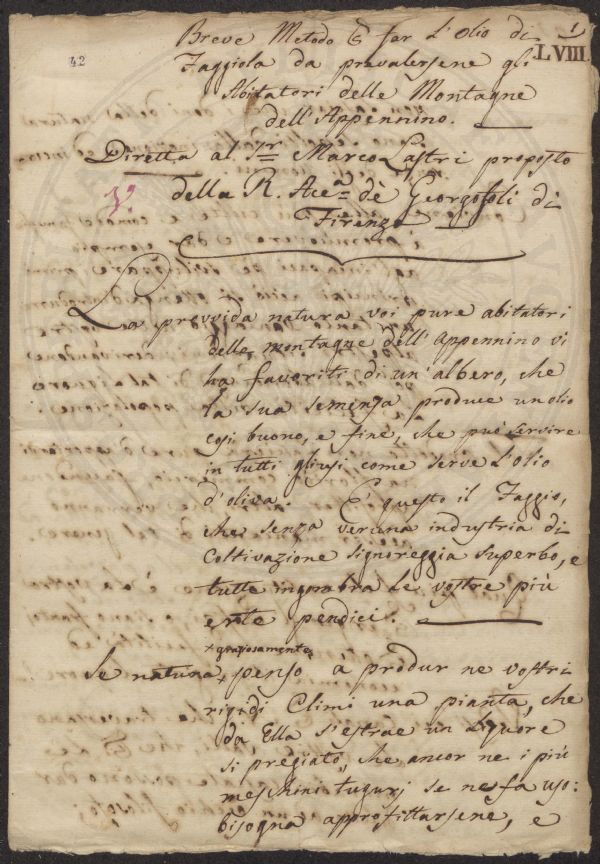 1
LVIII
42
Breve Metodo p far l'Olio di
Faggiola da prevalersene gli
Abitatori delle Montagne
dell'Appennino.
Diretta al Sr Marco Lastri proposto
della R. Acca de Georgofoli di
Firenze
La provvida natura voi pure abitatori
delle montagne dell'Appennino vi
ha favoriti di un'albero, che
la sua semenza produce un olio
così buono, e fine, che può servire
in tutti gl'usi come serve l'olio
d'oliva. E' questo il Faggio,
che senza veruna industria di
coltivazione signoreggia superbo, e
tutte ingombra le vostre più
erte pendici.
+ graziosamente
Se natura, penso à produr ne vostri
rigidi Climi una pianta, che
da Ella s'estrae un Liquore
si pregiato, che ancor ne i più
meschini tugurj se ne fa uso:
bisogna approfittarsene, e